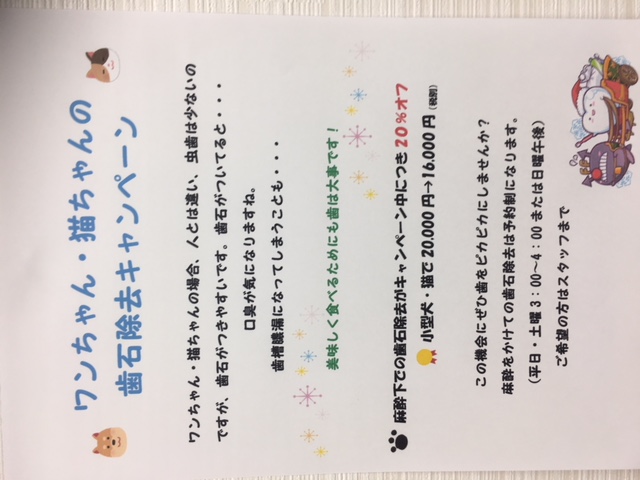 ワンちゃん・猫ちゃんの
歯石除去キャンペーン
ワンちゃん・猫ちゃんの場合、人とは違い、虫歯は少ないの
ですが、歯石がつきやすいです。歯石がついてると・・・
口臭が気になりますね。
歯槽膿漏になってしまうことも・・・
美味しく食べるためにも歯は大事です！
麻酔下での歯石除去がキャンペーン中につき20％オフ
小型犬・猫で20,000円→16,000円（税別）
この機会にぜひ歯をピカピカにしませんか？
麻酔をかけての歯石除去は予約制になります。
（平日・土曜3：00～4：00または日曜午後）
ご希望の方はスタッフまで